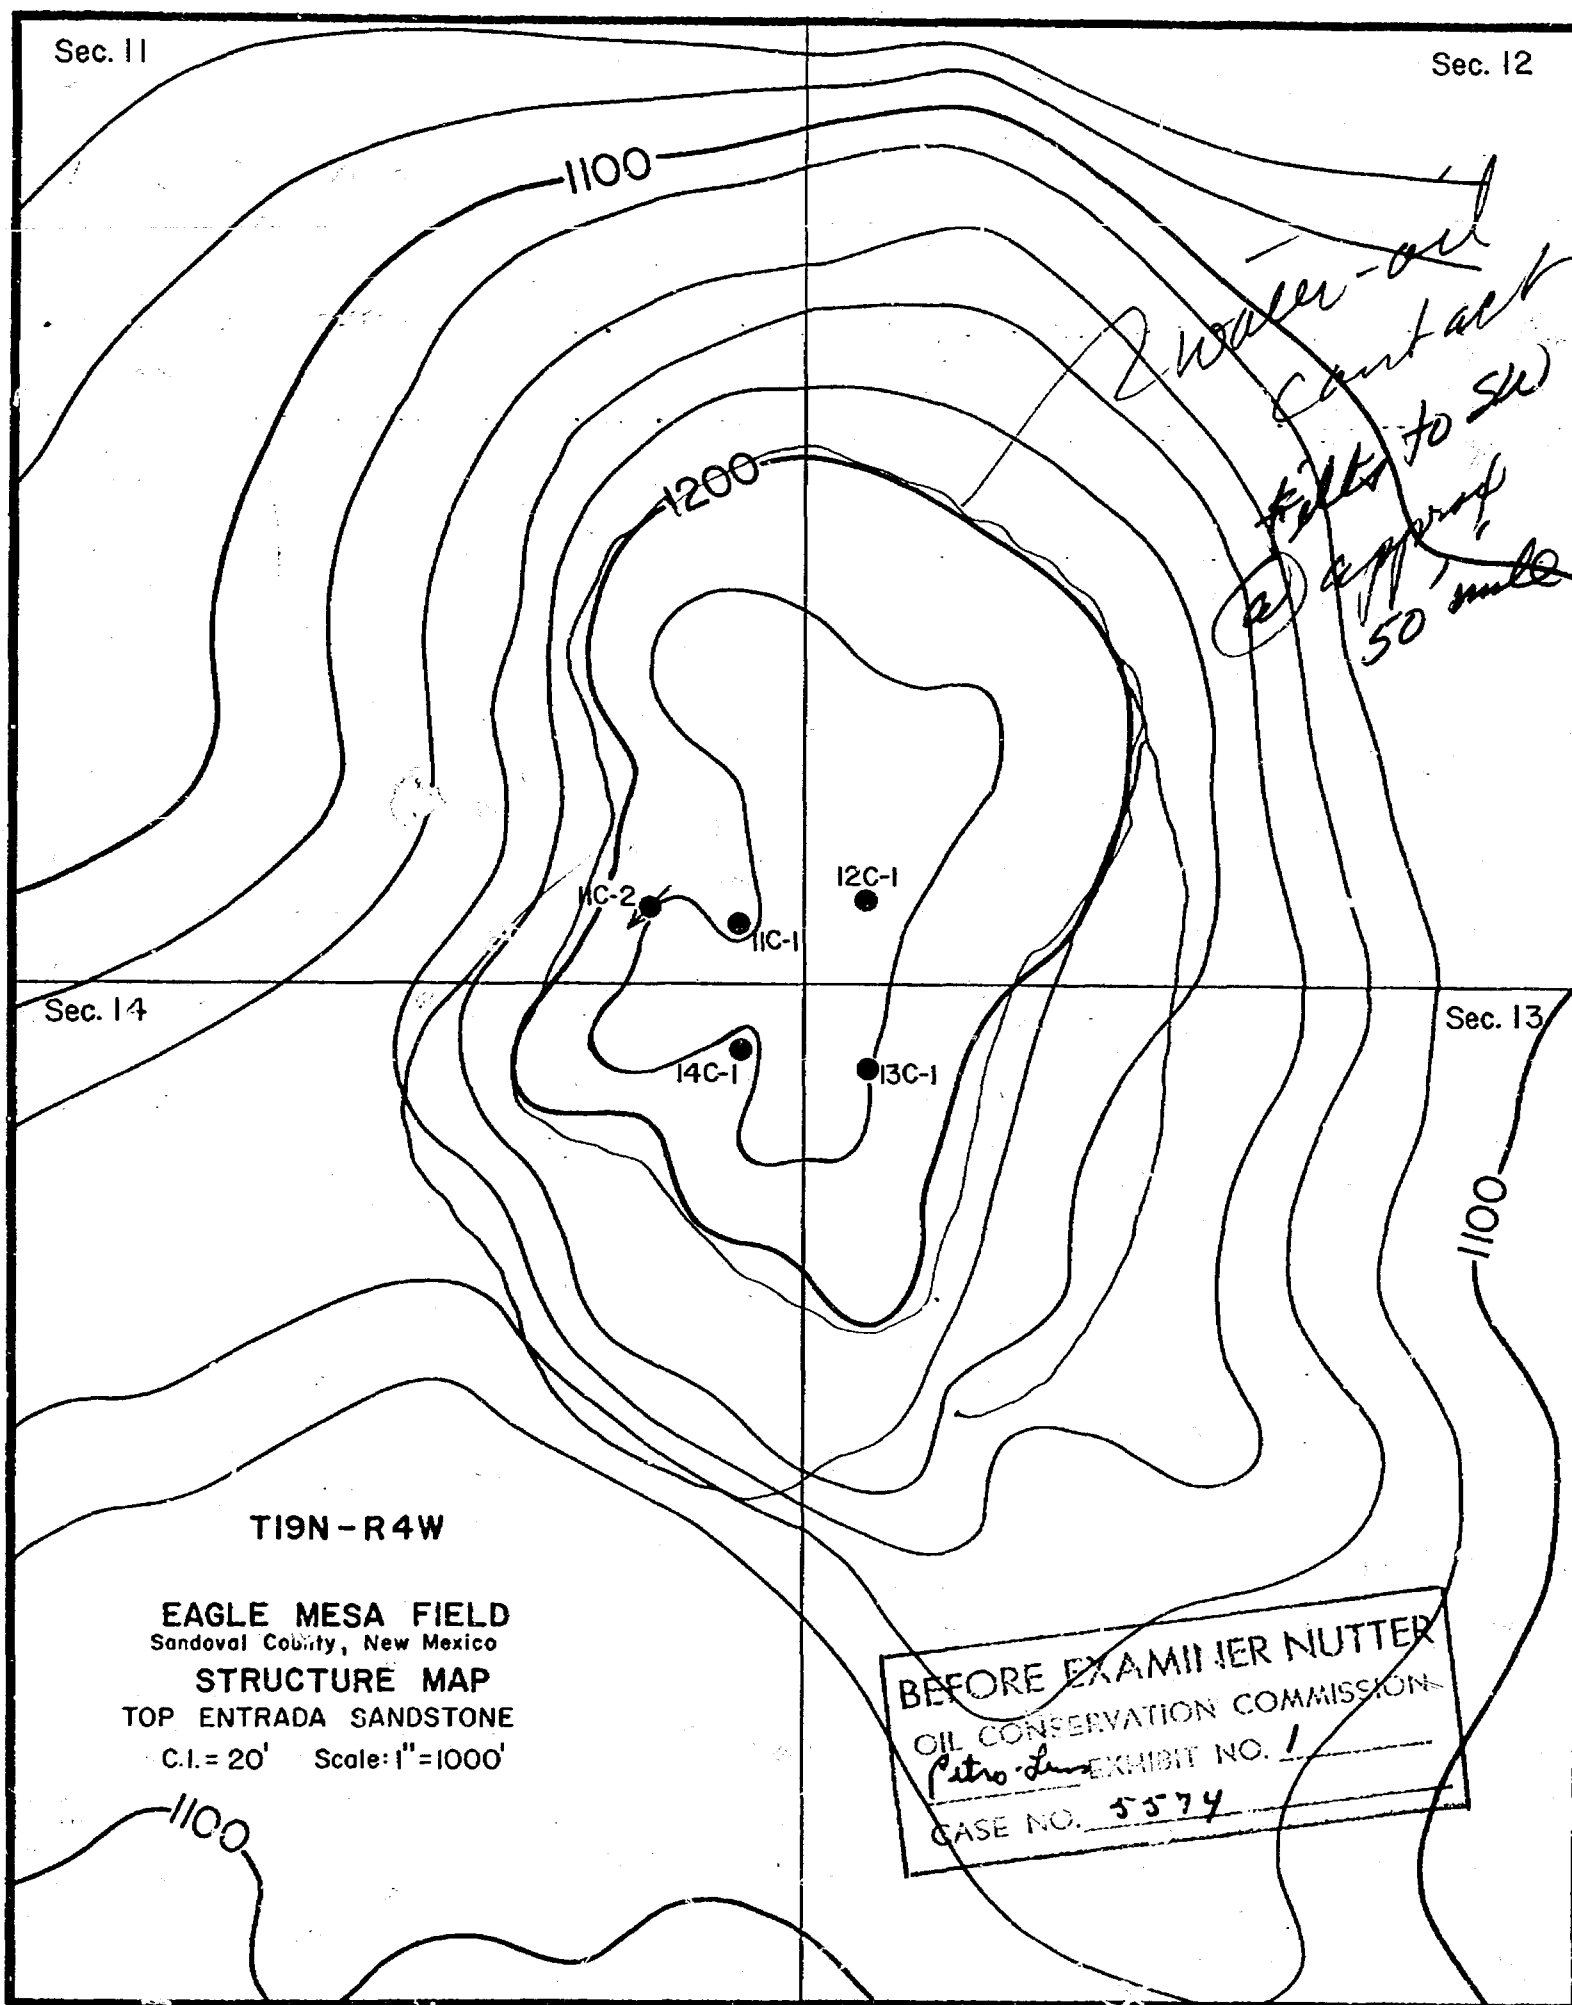 Sec. 11
Sec. 12
1100
water-oil
contact
tilts to SW
@ approx
50'/mile
1200
11C-2
11C-1
12C-1
Sec. 14
Sec. 13
14C-1
13C-1
1100
T19N-R4W
EAGLE MESA FIELD
Sandoval County, New Mexico
STRUCTURE MAP
TOP ENTRADA SANDSTONE
C.I. = 20' Scale: 1" = 1000'
1100
BEFORE EXAMINER NUTTER
OIL CONSERVATION COMMISSION
Petro-Lewis EXHIBIT NO. 1
CASE NO. 5574